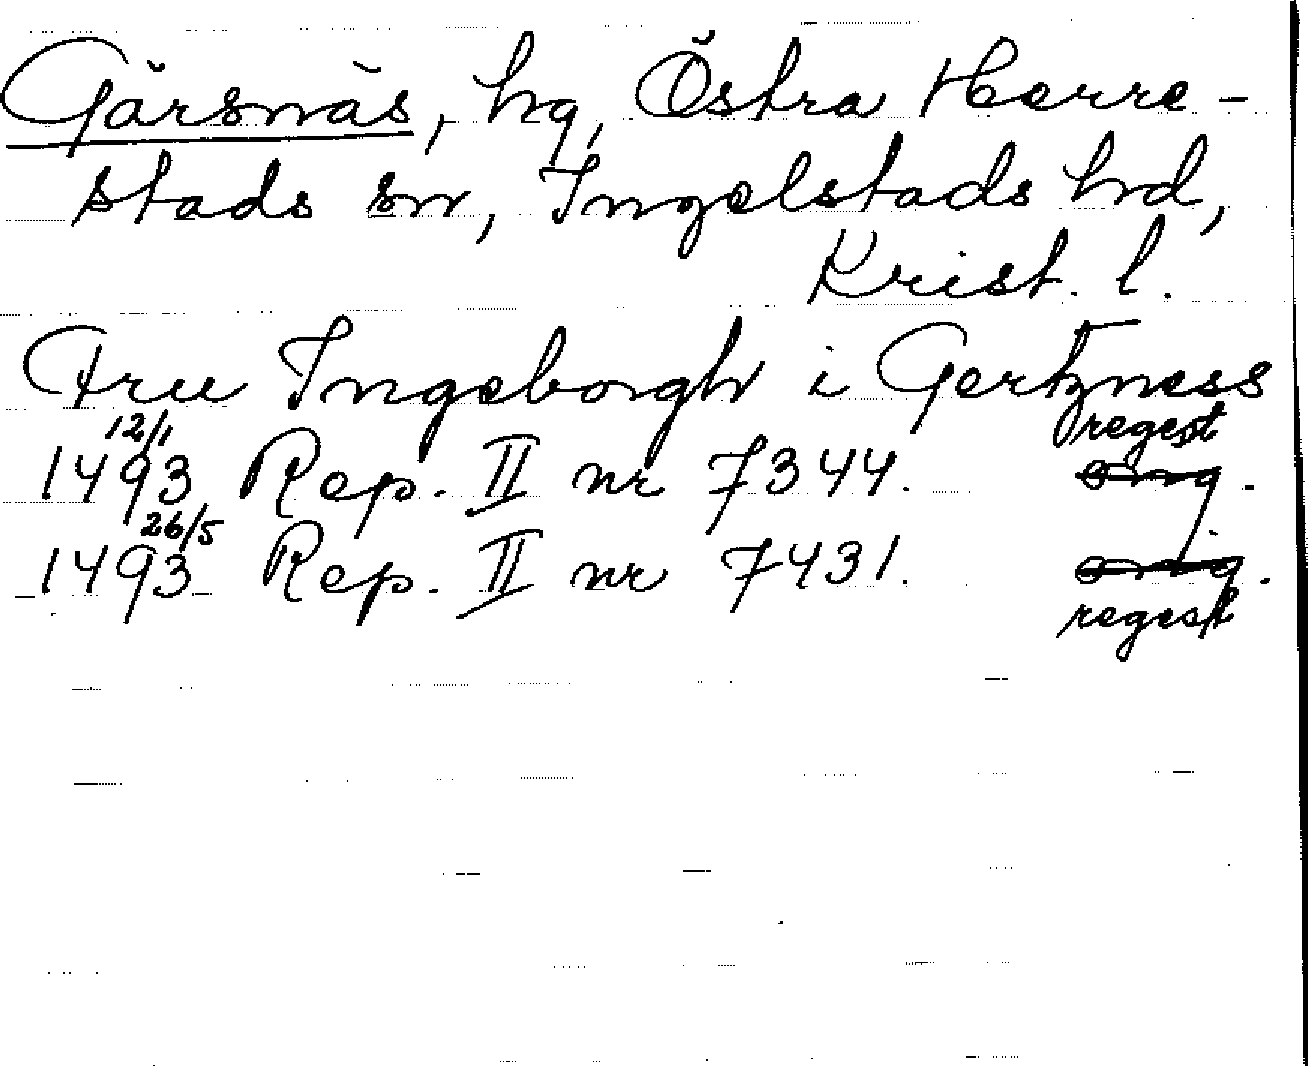 Gärsnäs, hg, Östra Herre-
stads sn, Ingelstads hd,
Krist. l.
Fru Ingeborgh i Gertzness
12/1 regest
1493 Rep. II nr 7344. orig.
26/5
1493 Rep. II nr 7431. orig.
regest